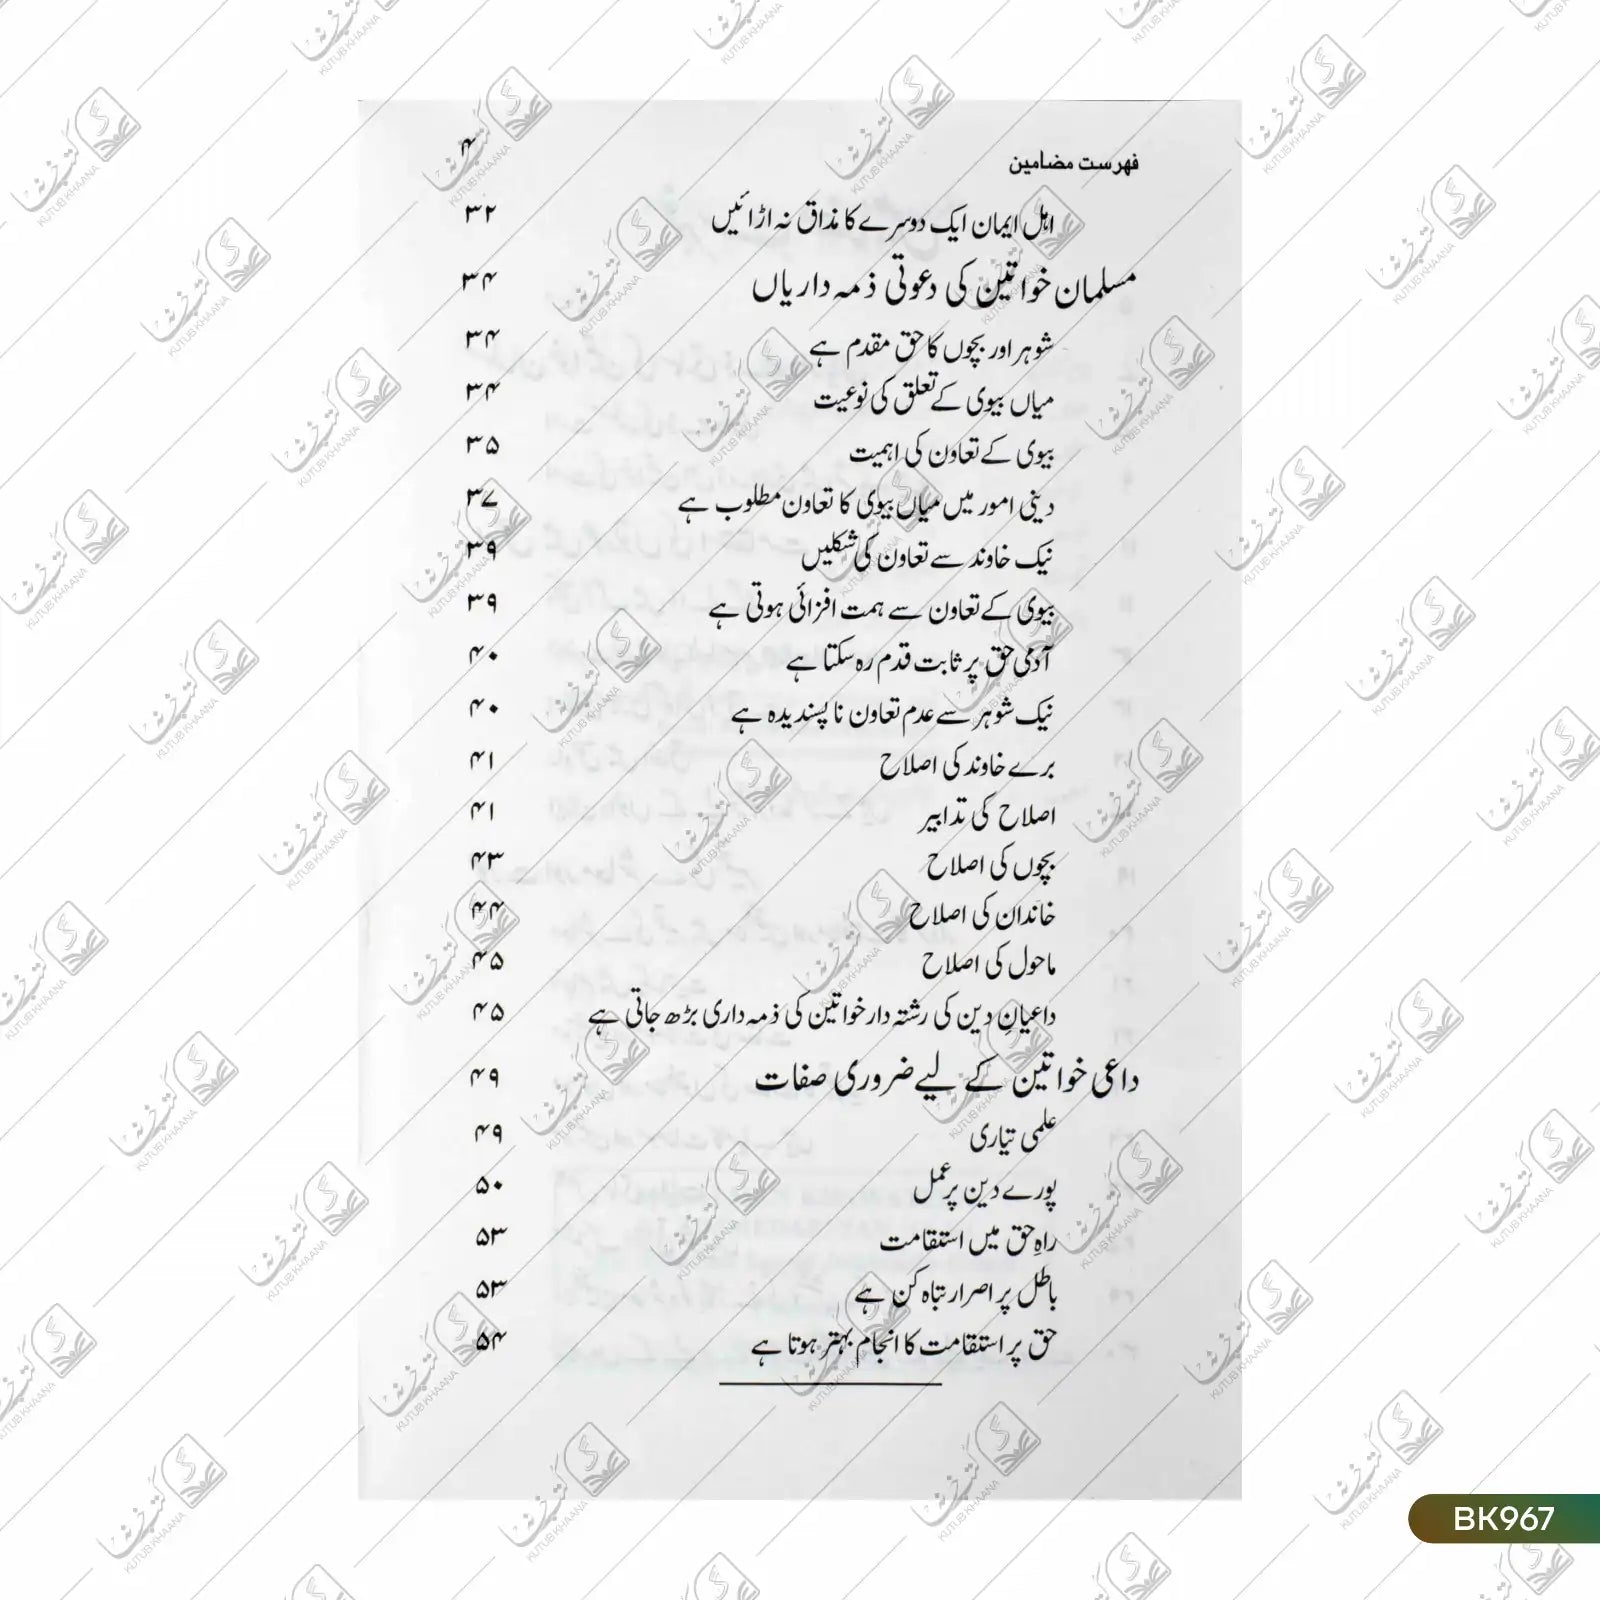 فہرست مضامین ۴
اہل ایمان ایک دوسرے کا مذاق نہ اڑائیں ۳۲
مسلمان خواتین کی دعوتی ذمہ داریاں ۳۴
شوہر اور بچوں کا حق مقدم ہے ۳۴
میاں بیوی کے تعلق کی نوعیت ۳۴
بیوی کے تعاون کی اہمیت ۳۵
دینی امور میں میاں بیوی کا تعاون مطلوب ہے ۳۷
نیک خاوند سے تعاون کی شکلیں ۳۹
بیوی کے تعاون سے ہمت افزائی ہوتی ہے ۳۹
آدمی حق پر ثابت قدم رہ سکتا ہے ۴۰
نیک شوہر سے عدم تعاون ناپسندیدہ ہے ۴۰
برے خاوند کی اصلاح ۴۱
اصلاح کی تدابیر ۴۱
بچوں کی اصلاح ۴۳
خاندان کی اصلاح ۴۴
ماحول کی اصلاح ۴۵
داعیانِ دین کی رشتہ دار خواتین کی ذمہ داری بڑھ جاتی ہے ۴۵
داعی خواتین کے لیے ضروری صفات ۴۹
علمی تیاری ۴۹
پورے دین پر عمل ۵۰
راہِ حق میں استقامت ۵۳
باطل پر اصرار تباہ کن ہے ۵۳
حق پر استقامت کا انجام بہتر ہوتا ہے ۵۴
BK967